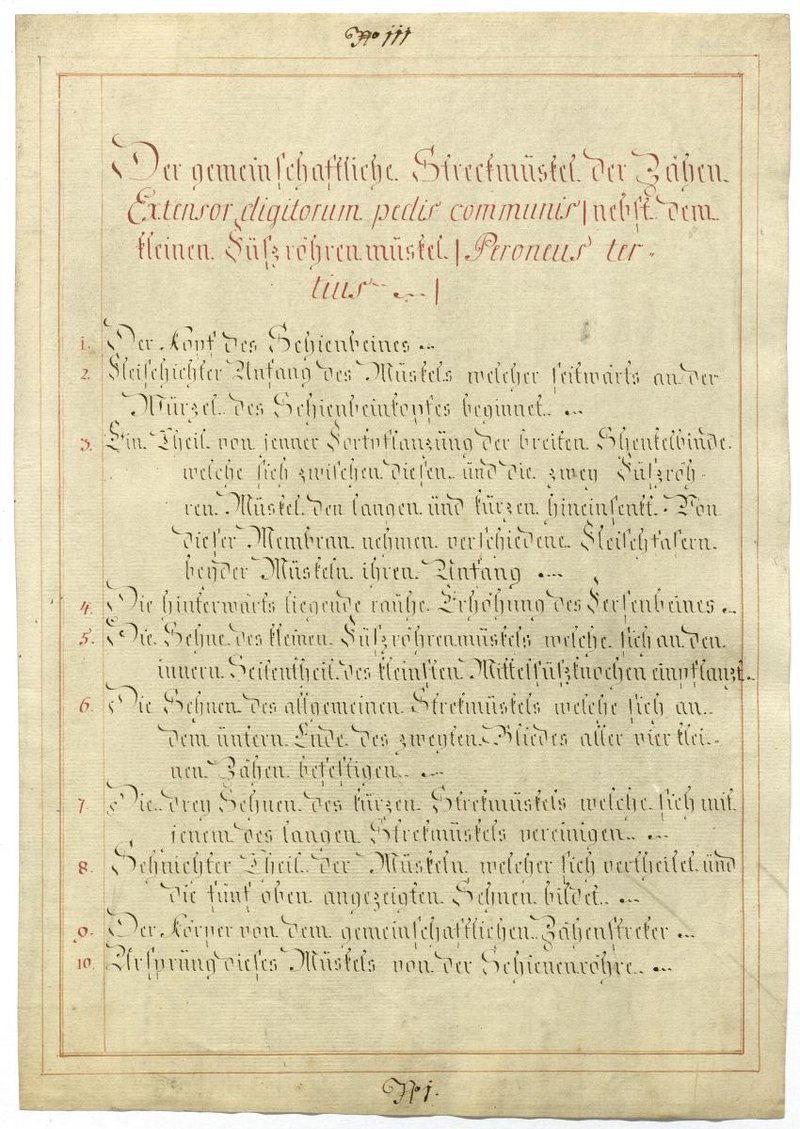 No III
Der gemeinschaftliche Streckmüskel der Zähen
Extensor digitorum pedis communis | nebst dem
kleinen Füßröhrenmüskel | Peroneus ter-
tius |
1. Der Kopf des Schienbeines
2. Fleischichter Anfang des Müskels welcher seitwärts an der
Würzel des Schienbeinkopfes beginnet.
3. Ein Theil von jenner Fortpflanzüng der breiten Shenkelbinde
welche sich zwischen diesen und die zwey Füßröh-
ren Müskel den langen und kürzen hineinsenkt. Von
dieser Membran nehmen verschiedene Fleischfasern
beyder Müskeln ihren Anfang
4. Die hinterwärts liegende rauhe Erhöhung des Fersenbeines
5. Die Sehne des kleinen Füßröhrenmüskels welche sich an den
innern Seitentheil des kleinsten Mittelfüßknochen einpflanzt
6. Die Sehnen des allgemeinen Strekmüskels welche sich an
dem üntern Ende des zweyten Gliedes aller vier klei-
nen Zähen befestigen
7. Die drey Sehnen des kürzen Strekmüskels welche sich mit
jenem des langen Strekmüskels vereinigen
8. Sehnichter Theil der Müskeln welcher sich vertheilet und
die fünf oben angezeigten Sehnen bildet
9. Der Körper von dem gemeinschaftlichen Zähenstreker
10. Ursprüng dieses Müskels von der Schienenröhre
No I.